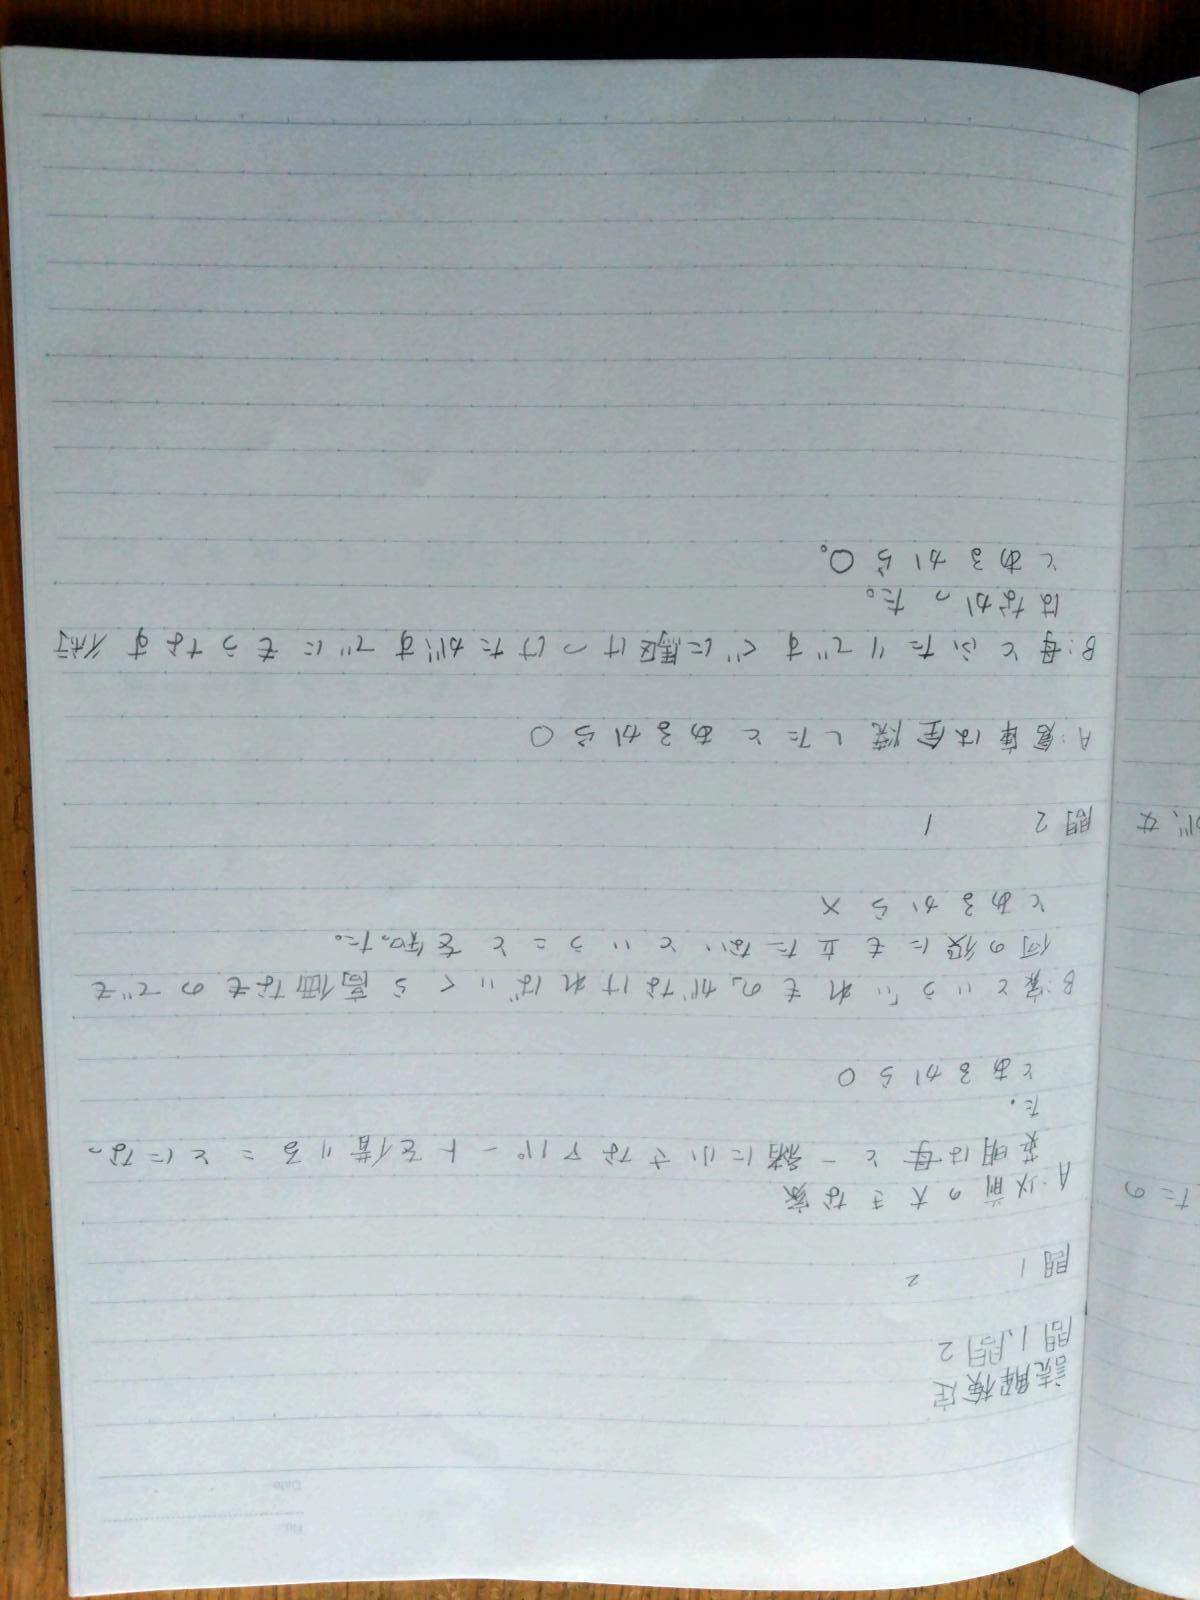 読解検定
問1,問2
問1 2
A:以前の大きな家
英明は母と一緒に小さなアパートを借りることになっ
た。
とあるから○
B:家という「いれもの」がなければいくら高価なものでも
何の役にも立たないということを知った。
とあるから×
問2 1
A:倉庫は全焼したとあるから○
B:母とふたりですぐに駆けつけたがすでにもうなす術
はなかった。
とあるから○。
Date
たの
が、女